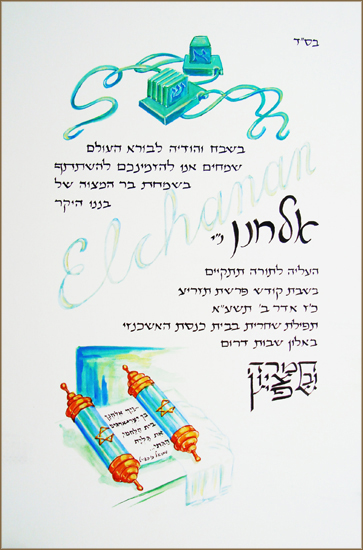 בס"ד
בשבח והודיה לבורא העולם
שמחים אנו להזמינכם להשתתף
בשמחת בר המצוה של
בננו היקר
Elchanan
אלחנן נ"י
העליה לתורה תתקיים
בשבת קודש פרשת תזריע
כ"ז אדר ב' תשע"א
תפילת שחרית בבית כנסת האשכנזי
באלון שבות דרום
...ויך אלחנן
בית הלחמי
את גלית
הגתי...